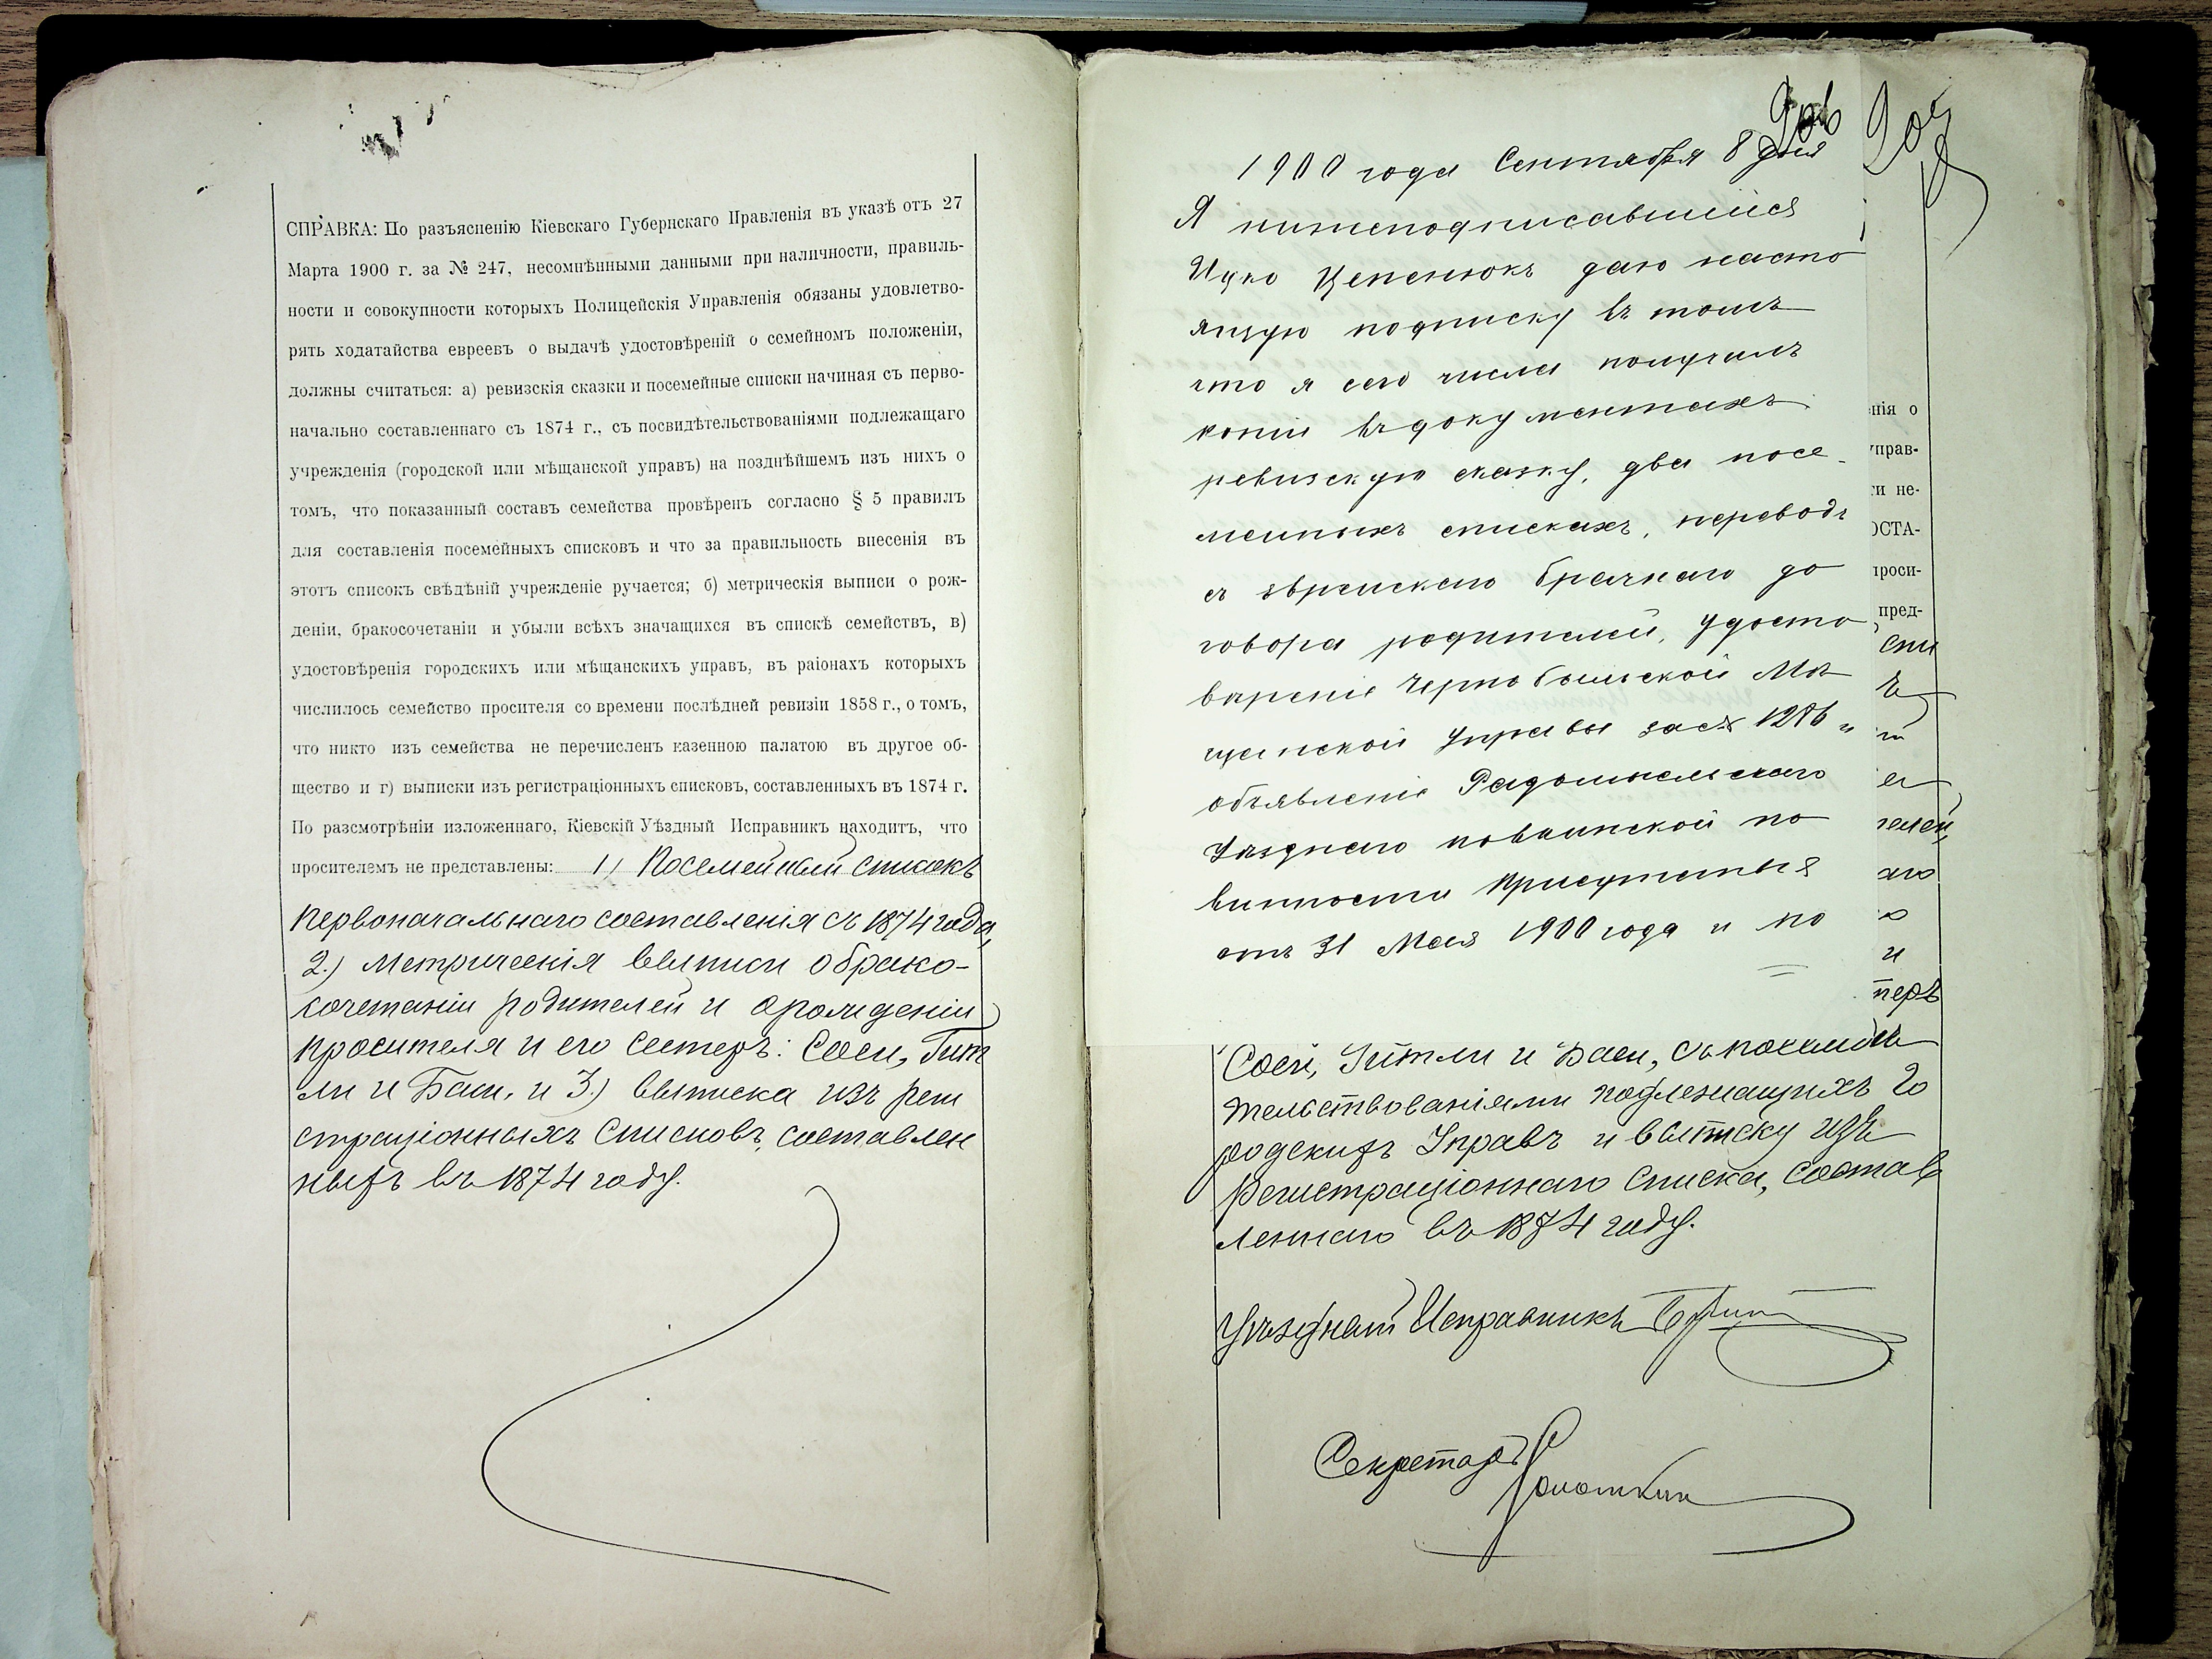 СПРАВКА: По разъясненію Кіевскаго Губернскаго Правленія въ указѣ отъ 27
Марта 1900 г. за № 247, несомнѣнными данными при наличности, правиль-
ности и совокупности которыхъ Полицейскія Управленія обязаны удовлетво-
рять ходатайства евреевъ о выдачѣ удостовѣреній о семейномъ положеніи,
должны считаться: а) ревизскія сказки и посемейные списки начиная съ перво-
начально составленнаго съ 1874 г., съ посвидѣтельствованіями подлежащаго
учрежденія (городской или мѣщанской управъ) на позднѣйшемъ изъ нихъ о
томъ, что показанный составъ семейства провѣренъ согласно § 5 правилъ
для составленія посемейныхъ списковъ и что за правильность внесенія въ
этотъ списокъ свѣдѣній учрежденіе ручается; б) метрическія выписи о рож-
деніи, бракосочетаніи и убыли всѣхъ значащихся въ спискѣ семействъ, в)
удостовѣренія городскихъ или мѣщанскихъ управъ, въ раіонахъ которыхъ
числилось семейство просителя со времени послѣдней ревизіи 1858 г., о томъ,
что никто изъ семейства не перечисленъ казенною палатою въ другое об-
щество и г) выписки изъ регистраціонныхъ списковъ, составленныхъ въ 1874 г.
По разсмотрѣніи изложеннаго, Кіевскій Уѣздный Исправникъ находитъ, что
просителемъ не представлены: 1) Посемейный списокъ
первоначальнаго составленія съ 1874 года,
2.) Метрическія выписи о брако-
сочетаніи родителей и о рожденіи
просителя и его сестеръ: Соси, Гит
ли и Баси, и 3.) выписка изъ реги
страціонныхъ списковъ, составлен
ныхъ въ 1874 году.
206
207
1900 года Сентября 8 дня
Я нижеподписавшийся
Ицко Цепенюкъ даю насто
ящую подписку въ томъ
что я сего числа получилъ
копіи въ документахъ
ревизскую сказку, два посе-
мейныхъ спискахъ, переводъ
съ еврейскаго брачнаго до
говора родителей, удосто
вѣреніе Чернобыльской Мѣ
щанской Управы за № 1286 и
объявленіе Радомысльскаго
Уѣзднаго по воинской по
винности Присутствія
отъ 31 Мая 1900 года и по
нія о
управ-
ти не-
ОСТА-
проси-
пред-
спи
ъ
телей,
аго
и
перъ
Соси, Гитли и Баси, съ посвидѣ
тельствованіями подлежащихъ Го
родскихъ Управъ и выписку изъ
регистраціоннаго списка, состав
леннаго въ 1874 году.
Уѣздный Исправникъ
Секретарь